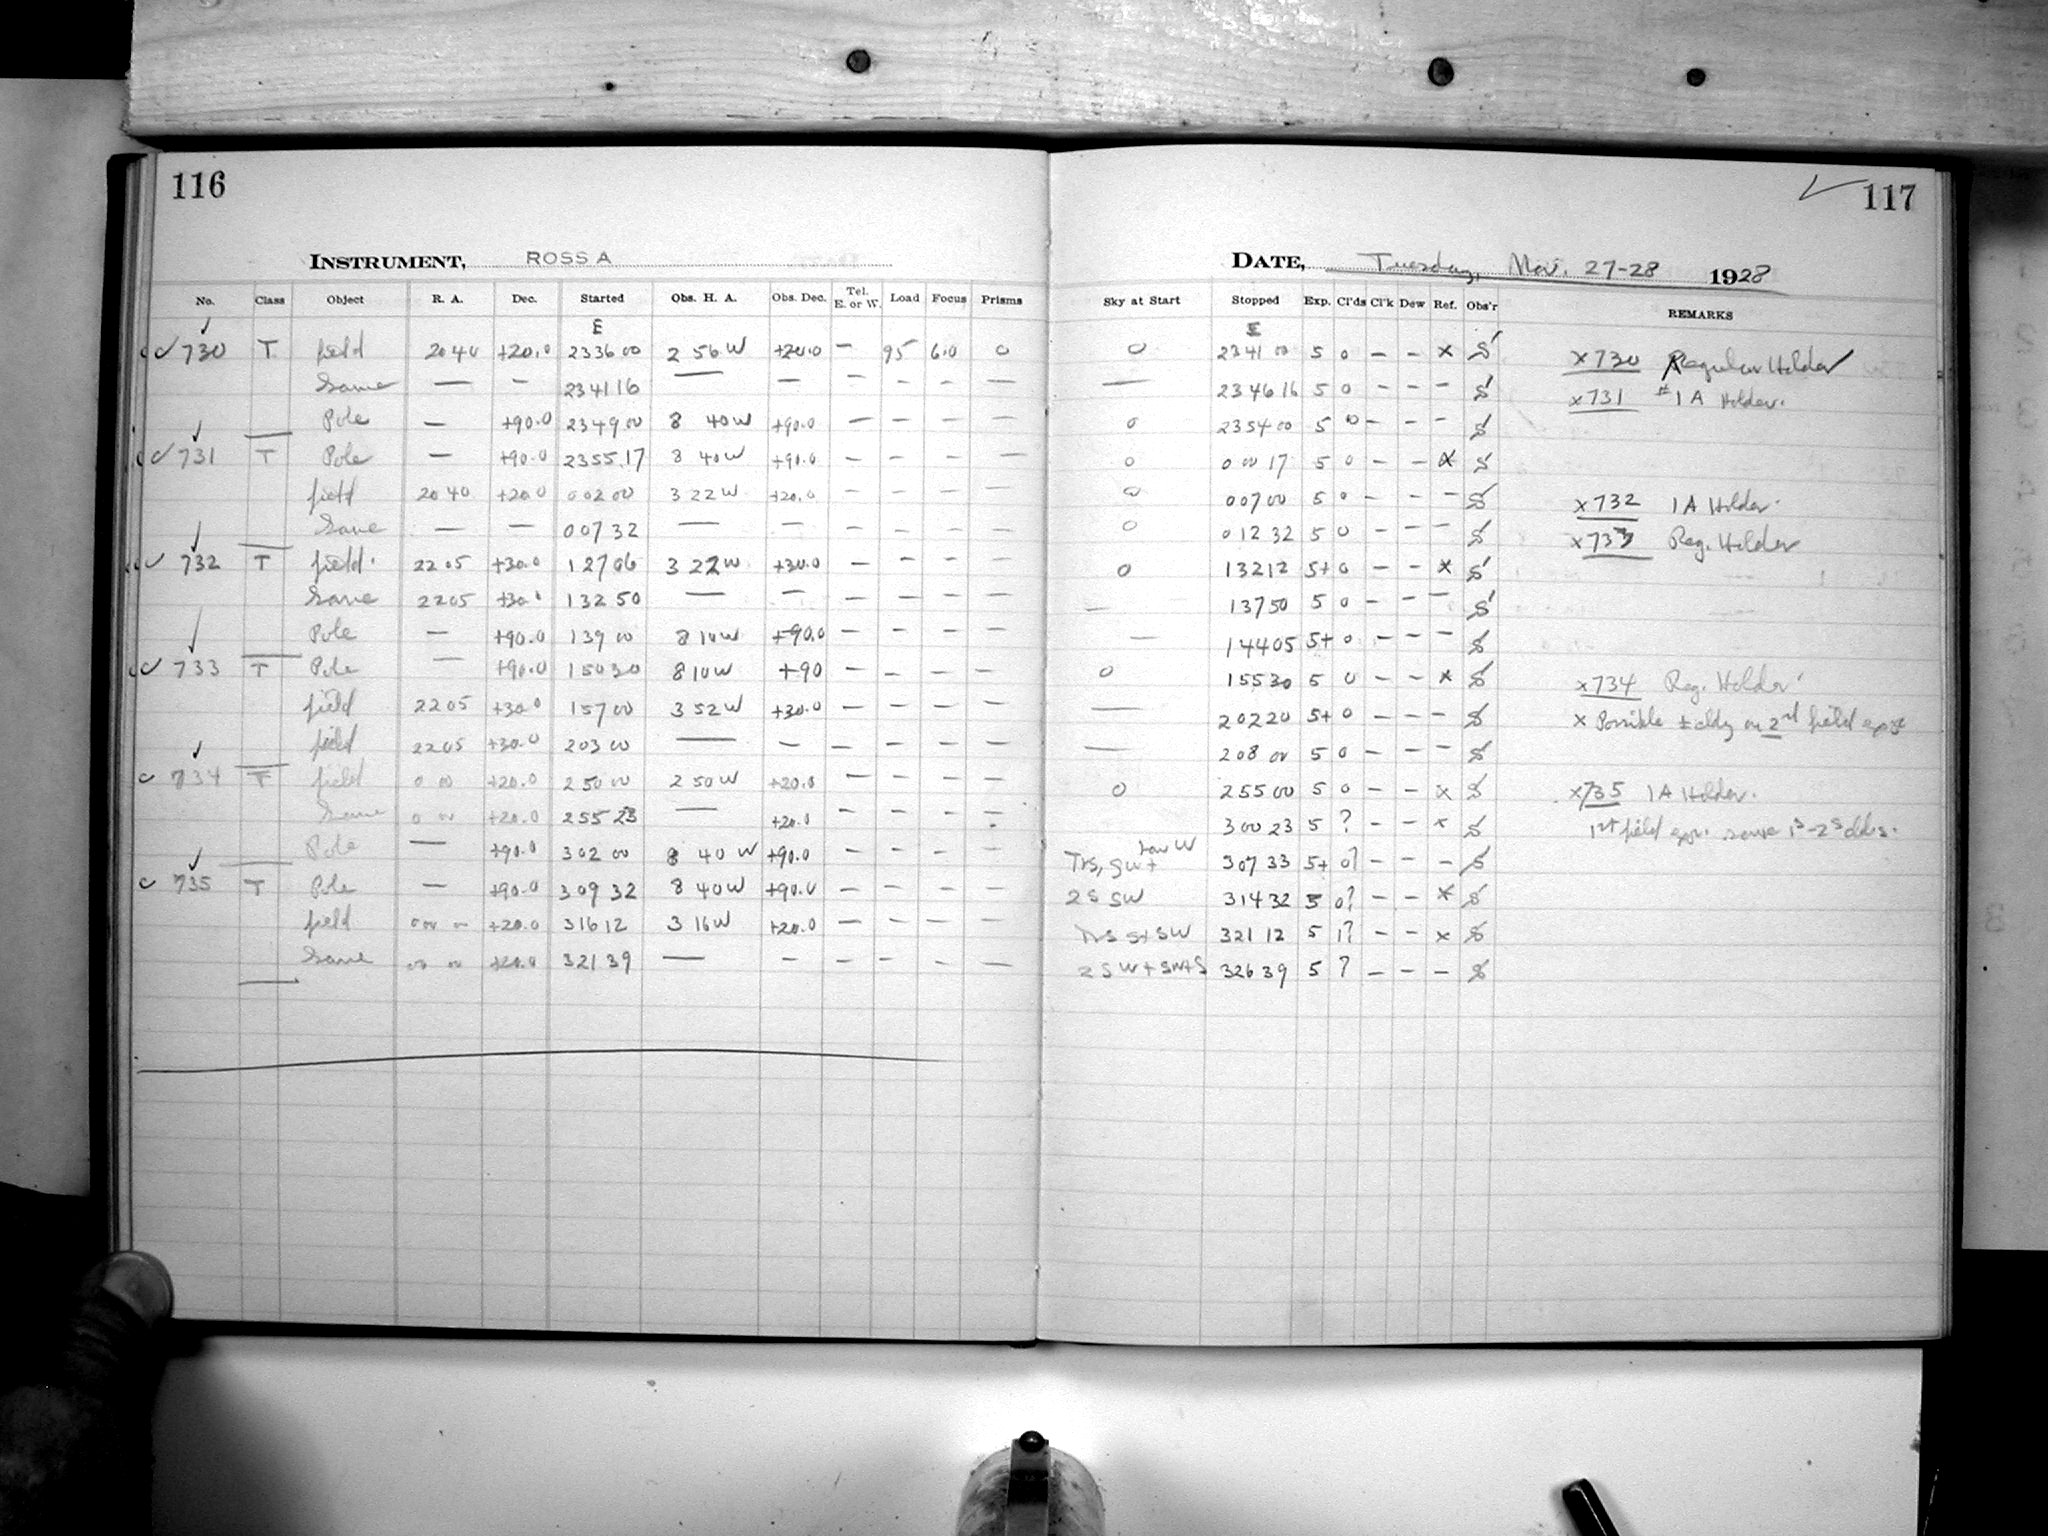 116
INSTRUMENT, ROSS A
No. Class Object R. A. Dec. Started Obs. H. A. Obs. Dec. Tel. E. or W. Load Focus Prisms
E
730 T field 20 40 +20.0 23 36 00 2 56 W +20.0 — 95 6.0 0
Same — — 23 41 16 — — — — — —
Pole — +90.0 23 49 00 8 40 W +90.0 — — — —
731 T Pole — +90.0 23 55 17 8 40 W +90.0 — — — —
field 20 40 +20.0 0 02 00 3 22 W +20.0 — — — —
Same — — 0 07 32 — — — — — —
732 T field 22 05 +30.0 1 27 06 3 22 W +30.0 — — — —
Same 22 05 +30.0 1 32 50 — — — — — —
Pole — +90.0 1 39 00 8 10 W +90.0 — — — —
733 T Pole — +90.0 1 50 30 8 10 W +90 — — — —
field 22 05 +30.0 1 57 00 3 52 W +30.0 — — — —
field 22 05 +30.0 2 03 00 — — — — — —
734 T field 0 00 +20.0 2 50 00 2 50 W +20.0 — — — —
Same 0 00 +20.0 2 55 23 — +20.0 — — — —
Pole — +90.0 3 02 00 8 40 W +90.0 — — — —
735 T Pole — +90.0 3 09 32 8 40 W +90.0 — — — —
field +20.0 3 16 12 3 16 W +20.0 — — — —
Same 00 00 +20.0 3 21 39 — — — — — —
117
DATE, Tuesday, Nov. 27-28 1928
Sky at Start Stopped Exp. Cl'ds Cl'k Dew Ref. Obs'r REMARKS
E
0 23 41 00 5 0 — — x S x730 Regular Holder
— 23 46 16 5 0 — — — S x731 #1A Holder.
0 23 54 00 5 0 — — — S
0 0 00 17 5 0 — — x S
0 0 07 00 5 0 — — — S x732 1A Holder.
0 0 12 32 5 0 — — — S x733 Reg. Holder
0 1 32 12 5+ 0 — — x S
— 1 37 50 5 0 — — — S
— 1 44 05 5+ 0 — — — S
0 1 55 30 5 0 — — x S x734 Reg. Holder
— 2 02 20 5+ 0 — — — S x Possible on 2nd field
— 2 08 00 5 0 — — — S
0 2 55 00 5 0 — — x S x735 1A Holder.
3 00 23 5 ? — — x S 1st field expr. some
low W
Trs, SW+ 3 07 33 5+ 0? — — — S
2S SW 3 14 32 5 0? — — x S
Trs S+SW 3 21 12 5 1? — — x S
3 26 39 5 ? — — — S